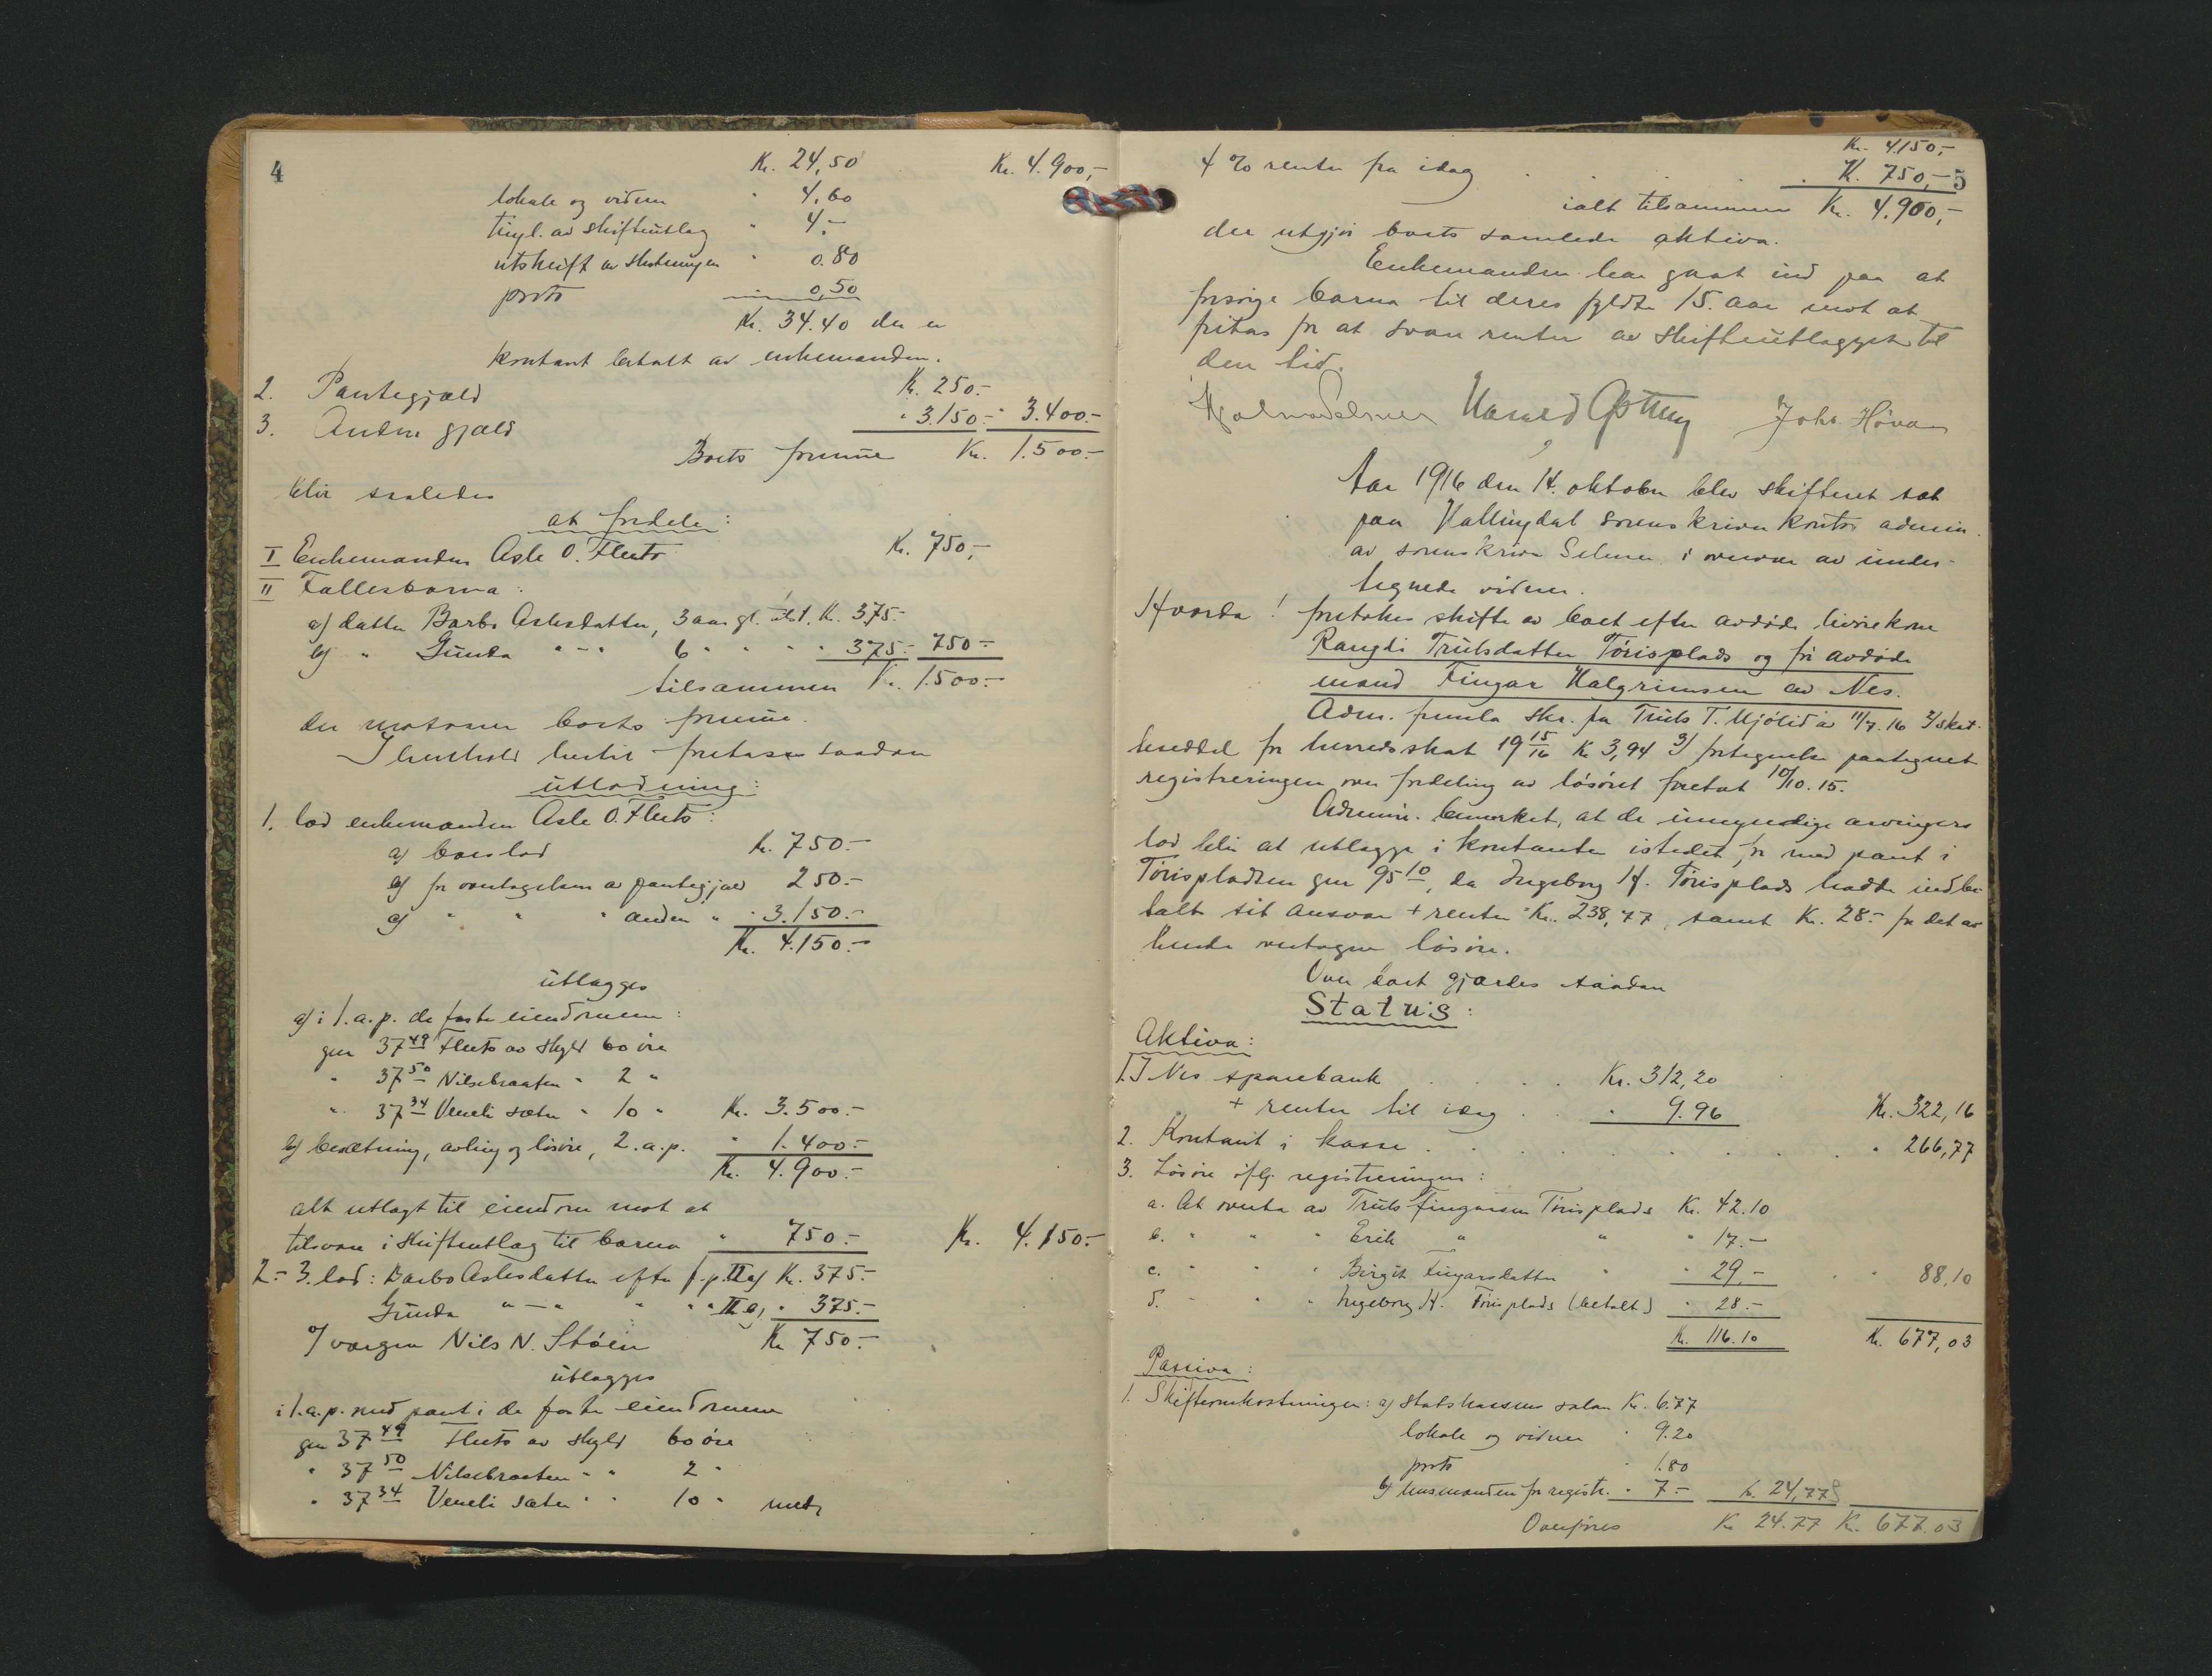 4
Kr. 24,50 Kr. 4.900,-
lokale og vidner " 4,60
tingl. av skifteutlæg " 4.-
utskrift av slutningen " 0.80
porto 0,50
Kr. 34.40 der er
kontant betalt av enkemanden.
2. Pantegjæld Kr. 250.-
3. Anden gjæld " 3.150.- " 3.400.-
Boets formue Kr. 1.500.-
blir saaledes
at fordele:
I Enkemanden Asle O. Fleto Kr. 750,-
II Fællesbarna:
a) datter Barbo Aslesdatter, 3 aar gl. utl. Kr. 375.-
b) " Gunda " - " 6 " " " " 375.- 750.-
tilsammen Kr. 1.500.-
der motsvarer boets formue.
I henhold hertil foretages saadan
utlodning:
1. lod enkemanden Asle O. Fleto:
a) boeslod Kr. 750.-
b) for overtagelsen av pantegjæld 250.-
c) " " " anden " " 3.150.-
Kr. 4.150.-
utlægges
a) i 1.a.p. de faste eiendomme:
gnr 37 49 Fleto av skyld 60 øre
" 37 50 Nilsebraaten " 2 "
" 37 34 Veneli sæter " 10 " Kr. 3.500.-
b) besætning, avling og løsøre, 2.a.p. " 1.400.-
Kr. 4.900.-
alt utlagt til eiendom mot at
tilsvare i skifteutlæg til barna " 750.- Kr. 4.150.-
2.- 3. lod: Barbo Aslesdatter efter f.p. II a) Kr. 375.-
Gunda " - " " " " II b) " 375.-
v/ værgen Nils N. Støen Kr. 750.-
utlægges
i 1.a.p. med pant i de faste eiendomme
gnr 37 49 Fleto av skyld 60 øre
" 37 50 Nilsebraaten " " 2 "
" 37 34 Veneli sæter " " 10 " med
5
Kr. 4.150,-
4 % renter fra idag . . . . . Kr. 750,-
ialt tilsammen Kr. 4.900,-
der utgjør boets samlede aktiva.
Enkemanden har gaat ind paa at
forsørge barna til deres fyldte 15. aar mot at
fritas for at svare renter av skifteutlægget til
den tid.
Hjalmar Selmer Harald Joh. Høva
Aar 1916 den 14. oktober blev skifteret sat
paa Hallingdal sorenskriverkontor admin.
av sorenskriver Selmer i overvær av under-
tegnede vidner.
Hvorda! foretokes skifte av boet efter avdøde livørekone
Rangdi Trulsdatter Tørisplads og før avdøde
mand Fingar Halgrimsen av Nes.
Adm. fremla skr. fra Truls T. Mjølid av 11/7. 16 2/ skat-
teseddel for herredsskat 19 15/16 Kr 3,94 3/ fortegnelse paategnet
registreringen over fordeling av løsøret foretat 10/10. 15.
Admin. bemerket, at de umyndige arvingers
lod blir at utlægge i kontanter istedet for med pant i
Tørispladsen gnr 95 10, da Ingeborg H. Tørisplads hadde indbe-
talt sit ansvar + renter = Kr. 238,77, samt Kr. 28.- for det av
hende overtagne løsøre.
Over boet gjordes saadan
Status:
Aktiva:
1. I Nes sparebank . . . . Kr. 312,20
+ renter til idag . . " 9.96 Kr. 322,16
2. Kontant i kasse . . . . . . . . " 266,77
3. Løsøre iflg. registreringen:
a. At overta av Truls Fingarsen Tørisplads Kr. 42.10
b. " " " Erik " " " 17.-
c. " " " Birgit Fingarsdatter " " 29.- . " 88,10
d. " " " Ingeborg H. Tørisplads (betalt) " 28.-
Kr. 116.10 Kr. 677,03
Passiva:
1. Skifteomkostninger: a) statskassens salær Kr. 6.77
lokale og vidner " 9.20
porto " 1.80
b) lensmanden for registr. " 7.- Kr. 24,77
Overføres Kr 24.77 Kr. 677.03